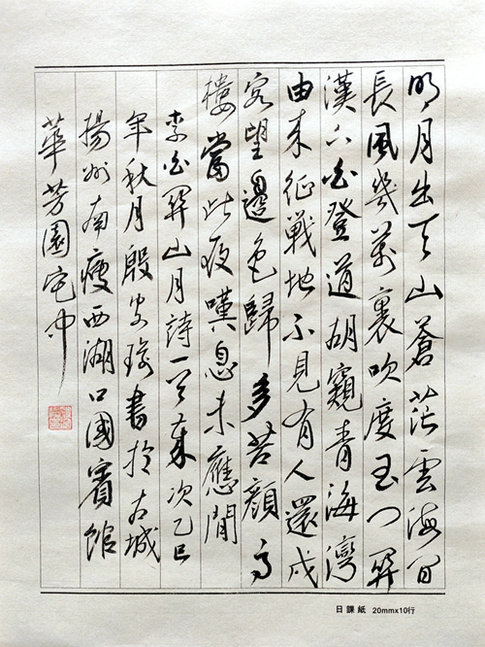 明月出天山蒼茫雲海間
長風幾萬裏吹度玉門關
漢下白登道胡窺青海灣
由來征戰地不見有人還戍
客望邊色歸多苦顏高
樓當此夜嘆息未應閒
李白關山月詩一首歲次乙巳
年秋月殷書於古城
揚州南瘦西湖口國賓館
華芳園宅中
日課紙 20mmx10行